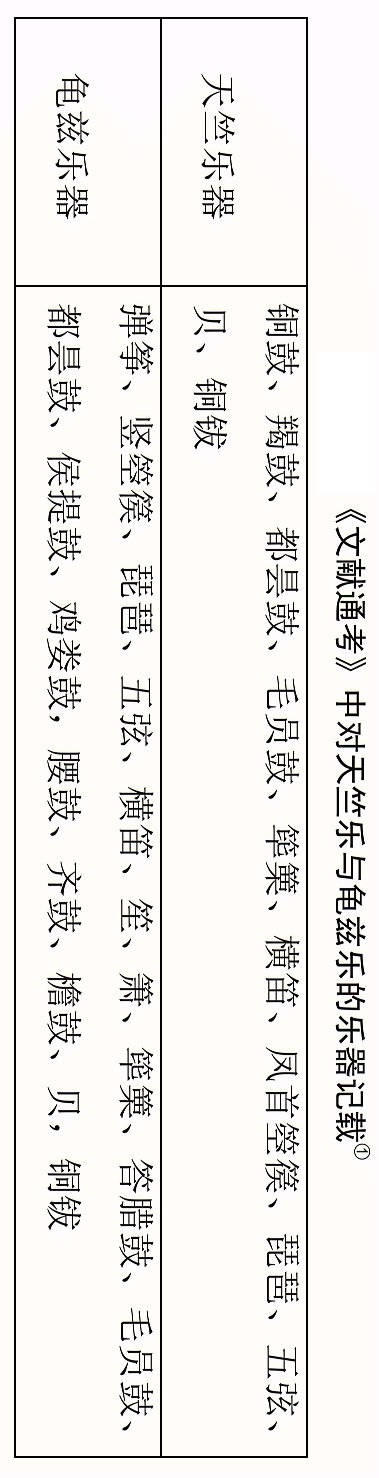 《文献通考》中对天竺乐与龟兹乐的乐器记载①
天竺乐器
铜鼓、羯鼓、都昙鼓、毛员鼓、筚篥、横笛、凤首箜篌、琵琶、五弦、
贝、铜钹
龟兹乐器
弹筝、竖箜篌、琵琶、五弦、横笛、笙、箫、筚篥、答腊鼓、毛员鼓、
都昙鼓、侯提鼓、鸡娄鼓，腰鼓、齐鼓、檐鼓、贝，铜钹